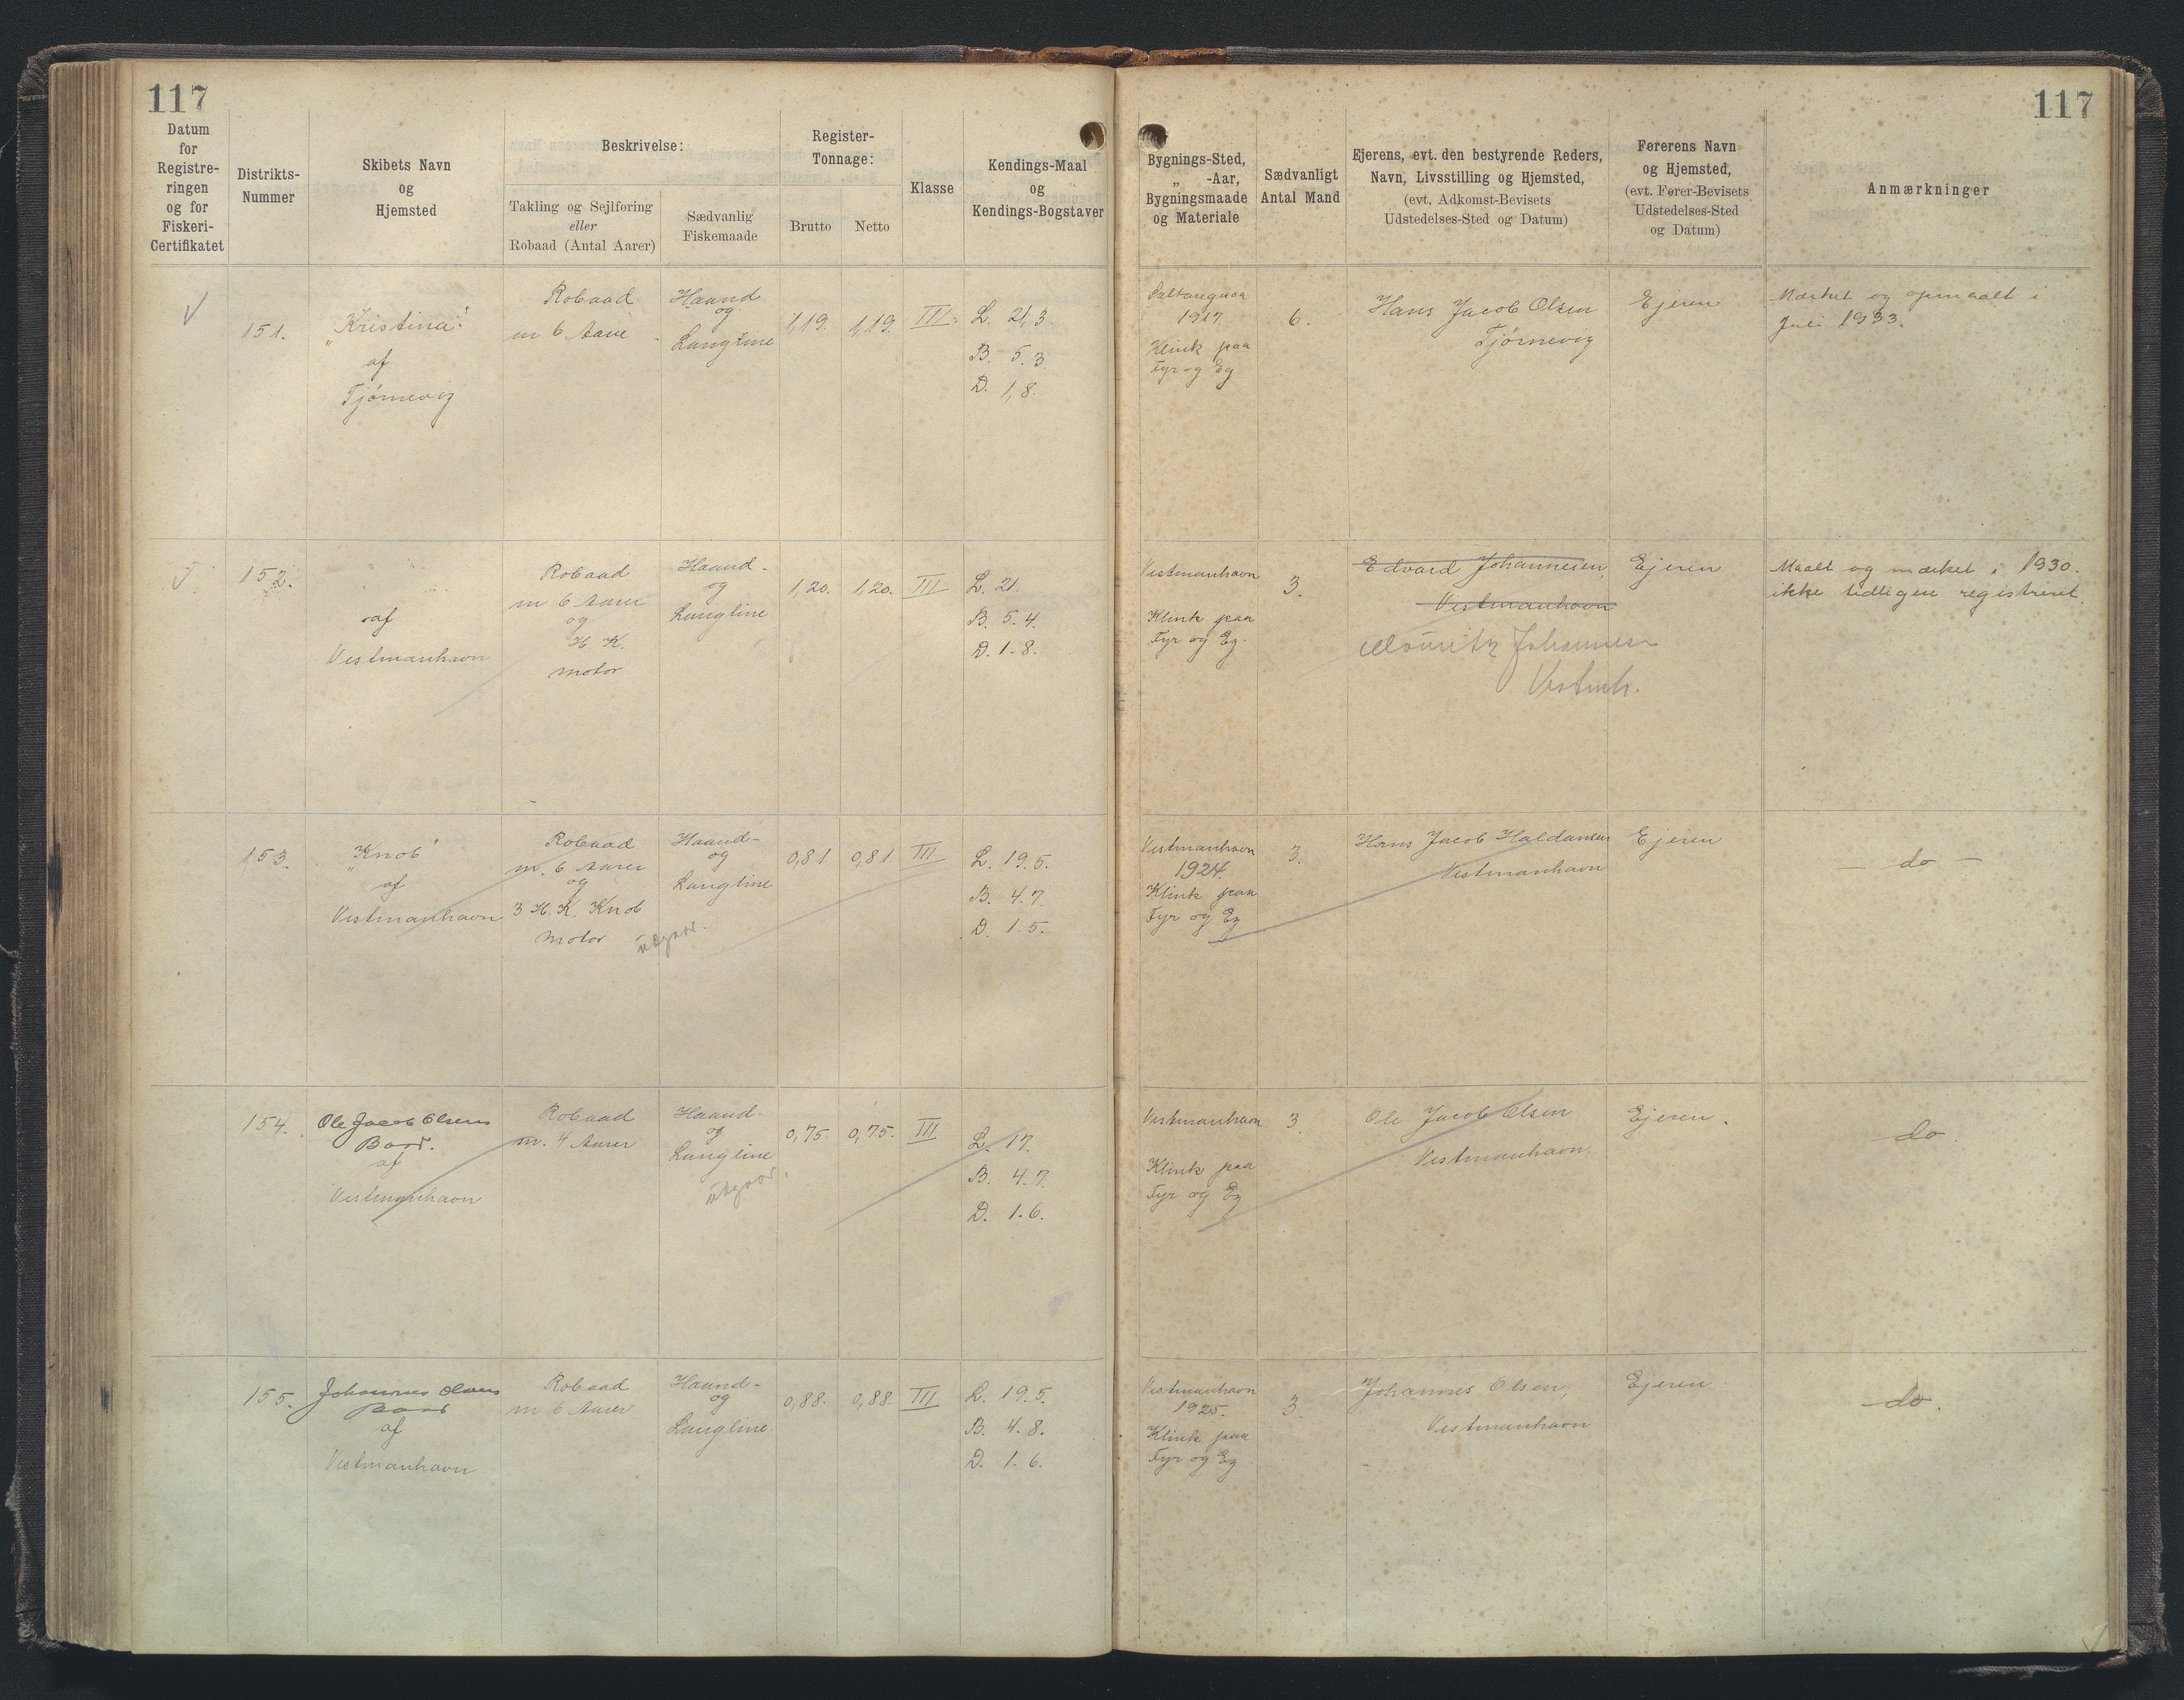 117
117
Datum
for
Registre-
ringen
og for
Fiskeri-
Certifikatet
Distrikts-
Nummer
Skibets Navn
og
Hjemsted
Beskrivelse:
Takling og Sejlføring
eller
Robaad (Antal Aarer)
Sædvanlig
Fiskemaade
Register-
Tonnage:
Brutto
Netto
Klasse
Kendings-Maal
og
Kendings-Bogstaver
Bygnings-Sted,
„ -Aar,
Bygningsmaade
og Materiale
Sædvanligt
Antal Mand
Ejerens, evt. den bestyrende Reders,
Navn, Livsstilling og Hjemsted,
(evt. Adkomst-Bevisets
Udstedelses-Sted og Datum)
Førerens Navn
og Hjemsted,
(evt. Fører-Bevisets
Udstedelses-Sted
og Datum)
Anmærkninger
151.
„Kristina"
af
Tjørnevig
Robaad
m 6 Aare
Haand
og
Langline
1,19.
1,19.
III.
L. 21,3
B. 5.3
D. 1,8.
1917
Klink paa
Fyr og Eg
6.
Hans Jacob Olsen
Tjørnevig
Ejeren
Mærket og opmaalt i
Juli 1933.
152.
af
Vestmanhavn
Robaad
m 6 Aarer
og
H. K.
motor
Haand-
og
Langline
1,20.
1,20.
III
L. 21.
B. 5.4.
D. 1-8.
Vestmanhavn
Klink paa
Fyr og Eg.
3.
Edvard Johannesen,
Vestmanhavn
Mouritz Johannesen
Vestmh.
Ejeren
Maalt og mærket i 1930.
ikke tidligere registreret.
153.
„Knob"
af
Vestmanhavn
Robaad
m. 6 Aarer
og
3 H. K. Knob
motor
udgaar.
Haand-
og
Langline
0,81
0,81
III
L. 19.5.
B. 4.7.
D. 1.5.
Vestmanhavn
1924.
Klink paa
Fyr og Eg
3.
Hans Jacob Haldansen
Vestmanhavn
Ejeren
— do —
154.
Ole Jacob Olsens
Baad.
af
Vestmanhavn
Robaad
m. 4 Aarer
Haand-
og
Langline
udgaar.
0,75
0,75.
III
L. 17.
B. 4.7.
D. 1-6.
Vestmanhavn
Klink paa
Fyr og Eg
3.
Ole Jacob Olsen
Vestmanhavn
Ejeren.
do
155.
Johannes Olsens
Baad
af
Vestmanhavn
Robaad
m 6 Aarer
Haand-
og
Langline
0,88.
0,88.
III
L. 19.5.
B. 4.8.
D. 1-6.
Vestmanhavn
1925.
Klink paa
Fyr og Eg
3.
Johannes Olsen,
Vestmanhavn
Ejeren
do.